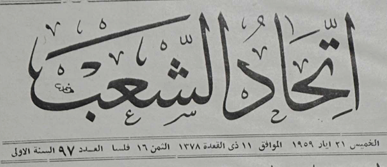 اتحاد الشعب
الخميس ٢١ ايار ١٩٥٩ الموافق ١١ ذى القعدة ١٣٧٨ الثمن ١٦ فلسا العدد ٩٧ السنة الاولى